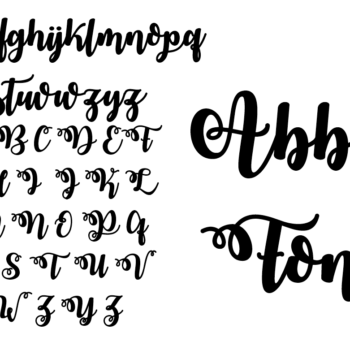 fghijklmnopq
stuvwxyz
B C D E F
I J K L
N O P Q
S T U V
W X Y Z
Abb
Fon